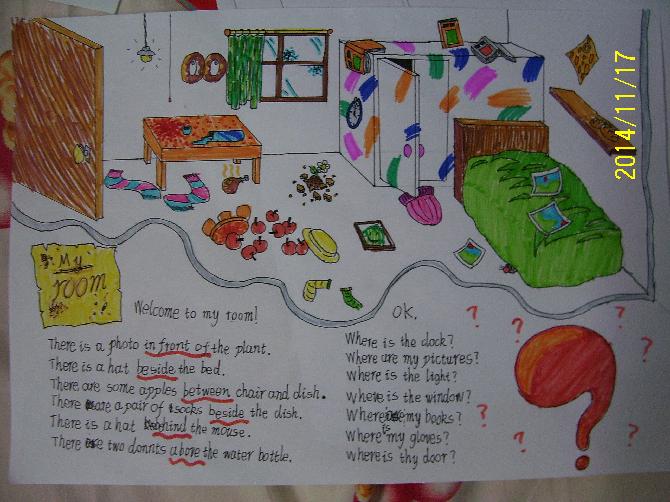 2014/11/17
My
room
Welcome to my room!
There is a photo in front of the plant.
There is a hat beside the bed.
There are some apples between chair and dish.
There are a pair of socks beside the dish.
There is a hat behind the mouse.
There are two donnts above the water bottle.
OK.
Where is the clock?
Where are my pictures?
Where is the light?
where is the window?
Where are my books?
Where is my gloves?
where is thy door?
? ? ? ? ? ? ?